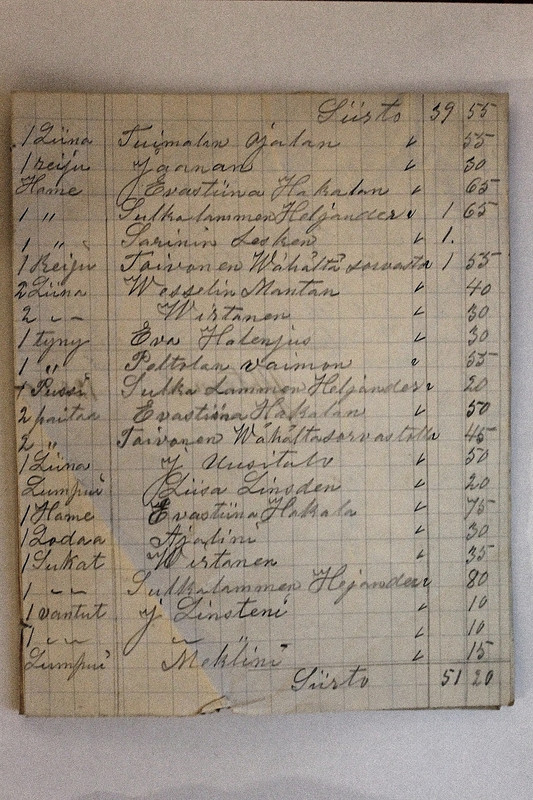 Siirto 39 55
1 Liina Tuimalan Jalan " 55
1 reiju Jaanan " 30
Hame Evastiina Hakalan " 65
1 " Sulka lammen Heljander " 1 65
1 " Sarinin Lesken " 1.
1 Reiju Toivonen Wähältä sorvasta 1 55
2 Liina Wesselin Mantan " 40
2 " " Wirtanen " 30
1 tyny Eva Halenjus " 30
1 " Peltolan vaimon " 55
1 Pussi Sulka Lammen Heljander " 20
2 paitaa Evastiina Hakalan " 50
2 " Toivonen Wähältäsorvastolla 45
1 Liina J Uusitalo " 50
Lumpui Liisa Linsden " 20
1 Hame Evastiina Hakala " 75
1 Lodaa Ajalini " 30
1 Sukat Wirtanen " 35
1 " " Sulkalammen Hejander " 80
1 vantut J Linsteni " 10
1 " " " " 10
Lumpui Meklini " 15
Siirto 51 20